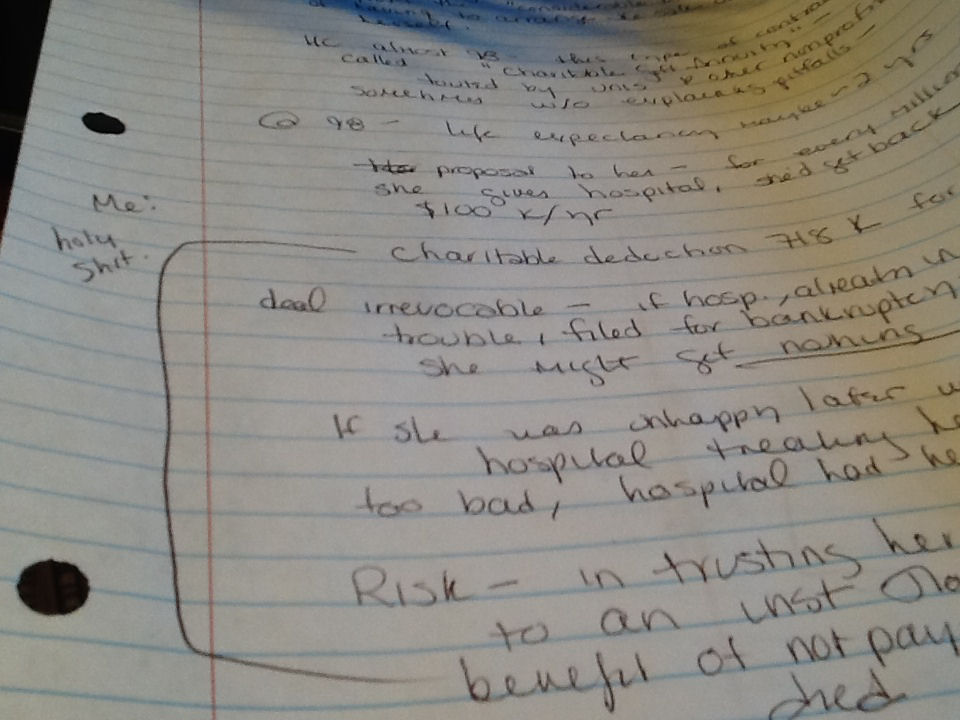 "considerable
HC almost 98 - this type of contra
called "Charitable Gift Annuity" -
touted by univs & other nonprofi
sometimes w/o explaining pitfalls -
@ 98 - life expectancy maybe 2 yrs
proposal to her - for every million
she gives hospital, she'd get back
$100 K/yr
Me:
holy
shit.
charitable deduction 718 K for
deal irrevocable - if hosp., already in
trouble, filed for bankruptcy
she might get nothing
If she was unhappy later w
hospital treating he
too bad, hospital had he
Risk - in trusting her
to an inst
benefit of not pay
died